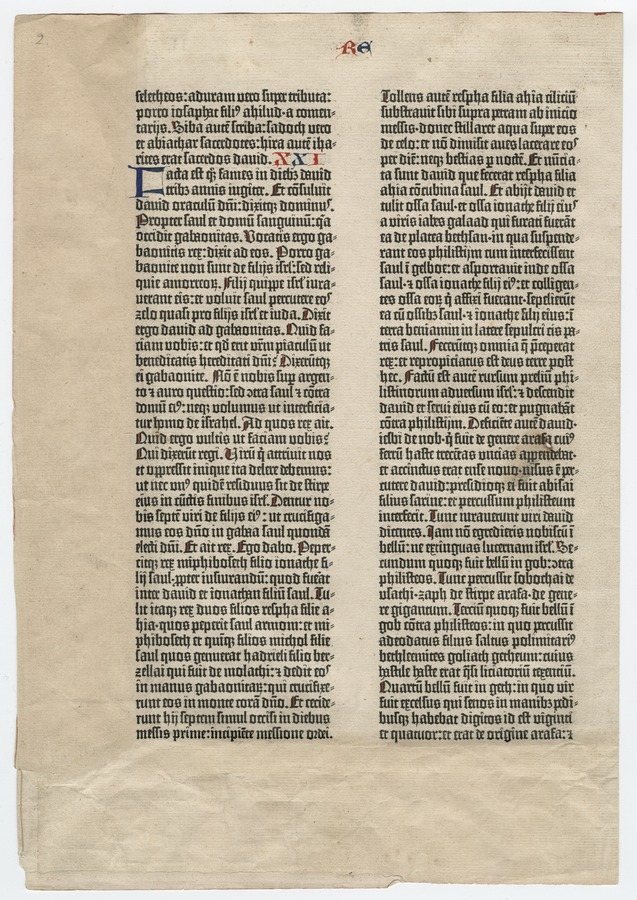 2
RE
feletheos: aduram vero super tributa:
porro iosaphat fili⁹ ahilud · a comen-
tarijs. Siba autē scriba: sadoch vero
et abiathar sacerdotes: hira autē iha-
rites erat sacerdos david. XXI
Facta est q̄ȝ fames in dieb⁹ david
trib⁹ annis iugiter. Et cōsuluit
david oraculū dn̄i: dixitq; dominus.
Propter saul et domū sanguinū: q̄a
occidit gabaonitas. Vocatis ergo ga-
baonitis rex: dixit ad eos. Porro ga-
baonite non sunt de filijs isrl̄: sed reli-
quie amorreoꝝ. Filij quippe isrl̄ iura-
verant eis: et voluit saul percutere eos
zelo quasi pro filijs isrl̄ et iuda. Dixit
ergo david ad gabaonitas. Quid fa-
ciam vobis: et qd̄ erit vr̄m piaculū ut
benedicatis hereditati dn̄i? Dixerūtq;
ei gabaonite. Nō ē nobis sup argen-
to ⁊ auro questio: sed ↄtra saul ⁊ cōtra
domū ei⁹: neq; volumus ut interficia-
tur homo de israhel. Ad quos rex ait.
Quid ergo vultis ut faciam vobis?
Qui dixerūt regi. Virū q̄ attrivit nos
et oppressit inique ita delere debemus:
ut nec un⁹ quidē residuus sit de stirpe
eius in cūctis finibus isrl̄. Dentur no-
bis septē viri de filijs ei⁹: ut crucifiga-
mus eos dn̄o in gabaa saul quondā
electi dn̄i. Et ait rex. Ego dabo. Peper-
citq; rex miphiboseth filio ionathe fi-
lij saul · ꝓpter iusiurandū: quod fuerat
inter david et ionathan filiū saul. Tu-
lit itaq; rex duos filios respha filie a-
hia · quos peperit saul armoni: et mi-
phiboseth et quīq; filios michol filie
saul quos genuerat hadrieli filio ber-
zellai qui fuit de molathi: ⁊ dedit eos
in manus gabaonitaꝝ: qui crucifixe-
runt eos in monte corā dn̄o. Et cecide-
runt hij septem simul occisi in diebus
messis prime: incipiēte messione ordei.
Tollens autē respha filia ahia ciliciū
substravit sibi supra petram ab inicio
messis · donec stillaret aqua super eos
de celo: et nō dimisit aves lacerare eos
per diē: neq; bestias p noctē. Et nūcia-
ta sunt david que fecerat respha filia
ahia cōcubina saul. Et abijt david et
tulit ossa saul · et ossa ionathe filij eius
a viris iabes galaad qui furati fuerāt
ea de platea bethsan · in qua suspende-
rant eos philistijm cum interfecissent
saul ī gelboe: et asportavit inde ossa
saul · ⁊ ossa ionathe filij ei⁹: et colligen-
tes ossa eoꝝ q̄ affixi fuerant · sepelierūt
ea cū ossib⁹ saul · ⁊ ionathe filij eius: ī
terra beniamin in latere sepulcri cis pa-
tris saul. Fecerūtq; omnia q̄ p̄ceperat
rex: et repropiciatus est deus terre post
hec. Factū est autē rursum preliū phi-
listinorum adversum isrl̄: ⁊ descendit
david et servi eius cū eo: et pugnabāt
cōtra philistijm. Deficiēte autē david ·
iesbi de nob · q̄ fuit de genere arafa cui⁹
ferrū haste trecētas uncias appendebat ·
et accinctus erat ense novo · nisus ē per-
cutere david: presidioq; ei fuit abisai
filius sarvie: et percussum philisteum
interfecit. Tunc iuraverunt viri david
dicentes. Iam nō egredieris nobiscū ī
bellū: ne extinguas lucernam isrl̄. Se-
cundum quoq; fuit bellū in gob: ↄtra
philisteos. Tunc percussit sobochai de
usathi · zaph de stirpe arafa · de gene-
re gigantum. Terciū quoq; fuit bellū ī
gob cōtra philisteos: in quo percussit
adeodatus filius saltus polimitari⁹
bethleemites goliath getheum: cuius
hastile haste erat q̄si liciatoriū texentiū.
Quartū bellū fuit in geth: in quo vir
fuit excelsus qui senos in manib⁹ pedi-
busq; habebat digitos id est viginti
et quatuor: et erat de origine arafa: ⁊